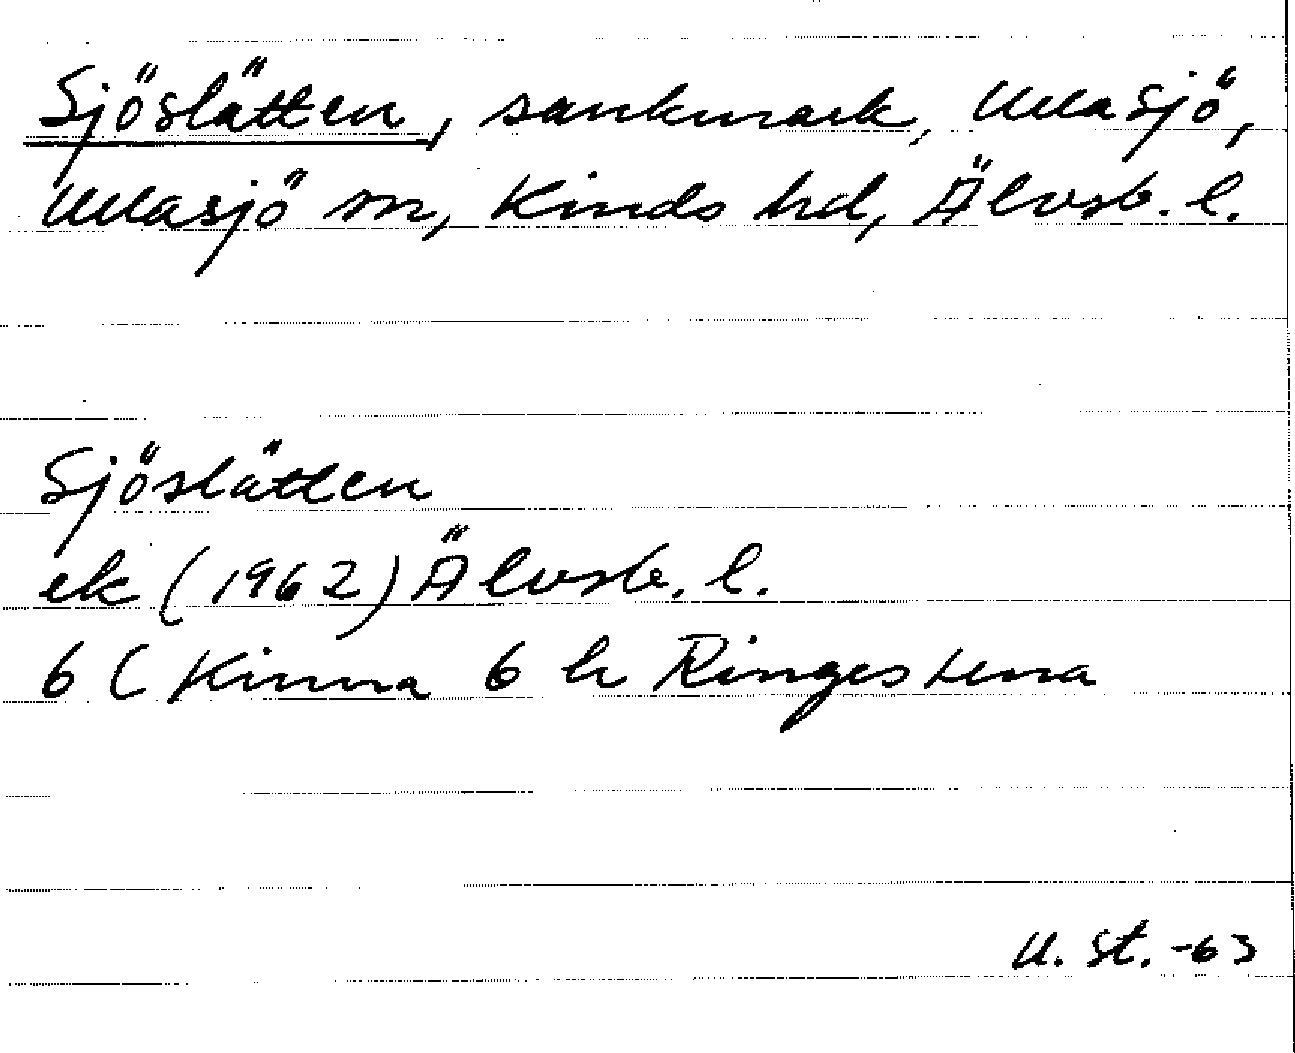 Sjöslätten, sankmark, Ullasjö,
Ullasjö sn, Kinds hd, Älvsb. l.
Sjöslätten
ek (1962) Älvsb. l.
6 C Kinna 6 h Ringestena
U. St. -63